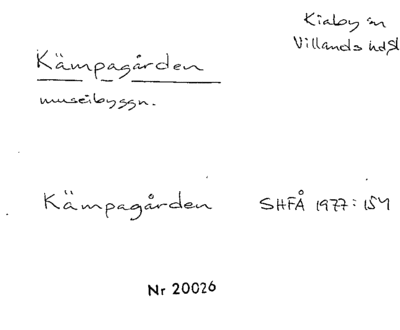 Kiaby sn
Villands hd Sk
Kämpagården
museibyggn.
Kämpagården SHFÅ 1977:154
Nr 20026